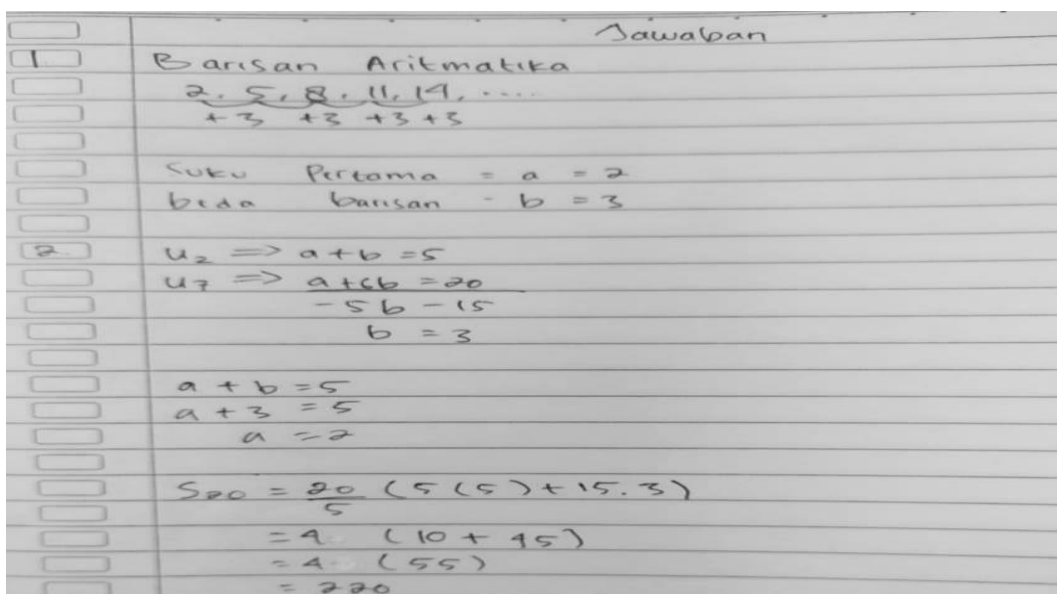 Jawaban
1. Barisan Aritmatika
2, 5, 8, 11, 14, ....
+3 +3 +3 +3
Suku Pertama = a = 2
beda barisan - b = 3
2. U₂ => a + b = 5
U₇ => a + 6b = 20
-5b - 15
b = 3
a + b = 5
a + 3 = 5
a = 2
S₂₀ = 20/5 (5(5) + 15.3)
= 4 (10 + 45)
= 4 (55)
= 220